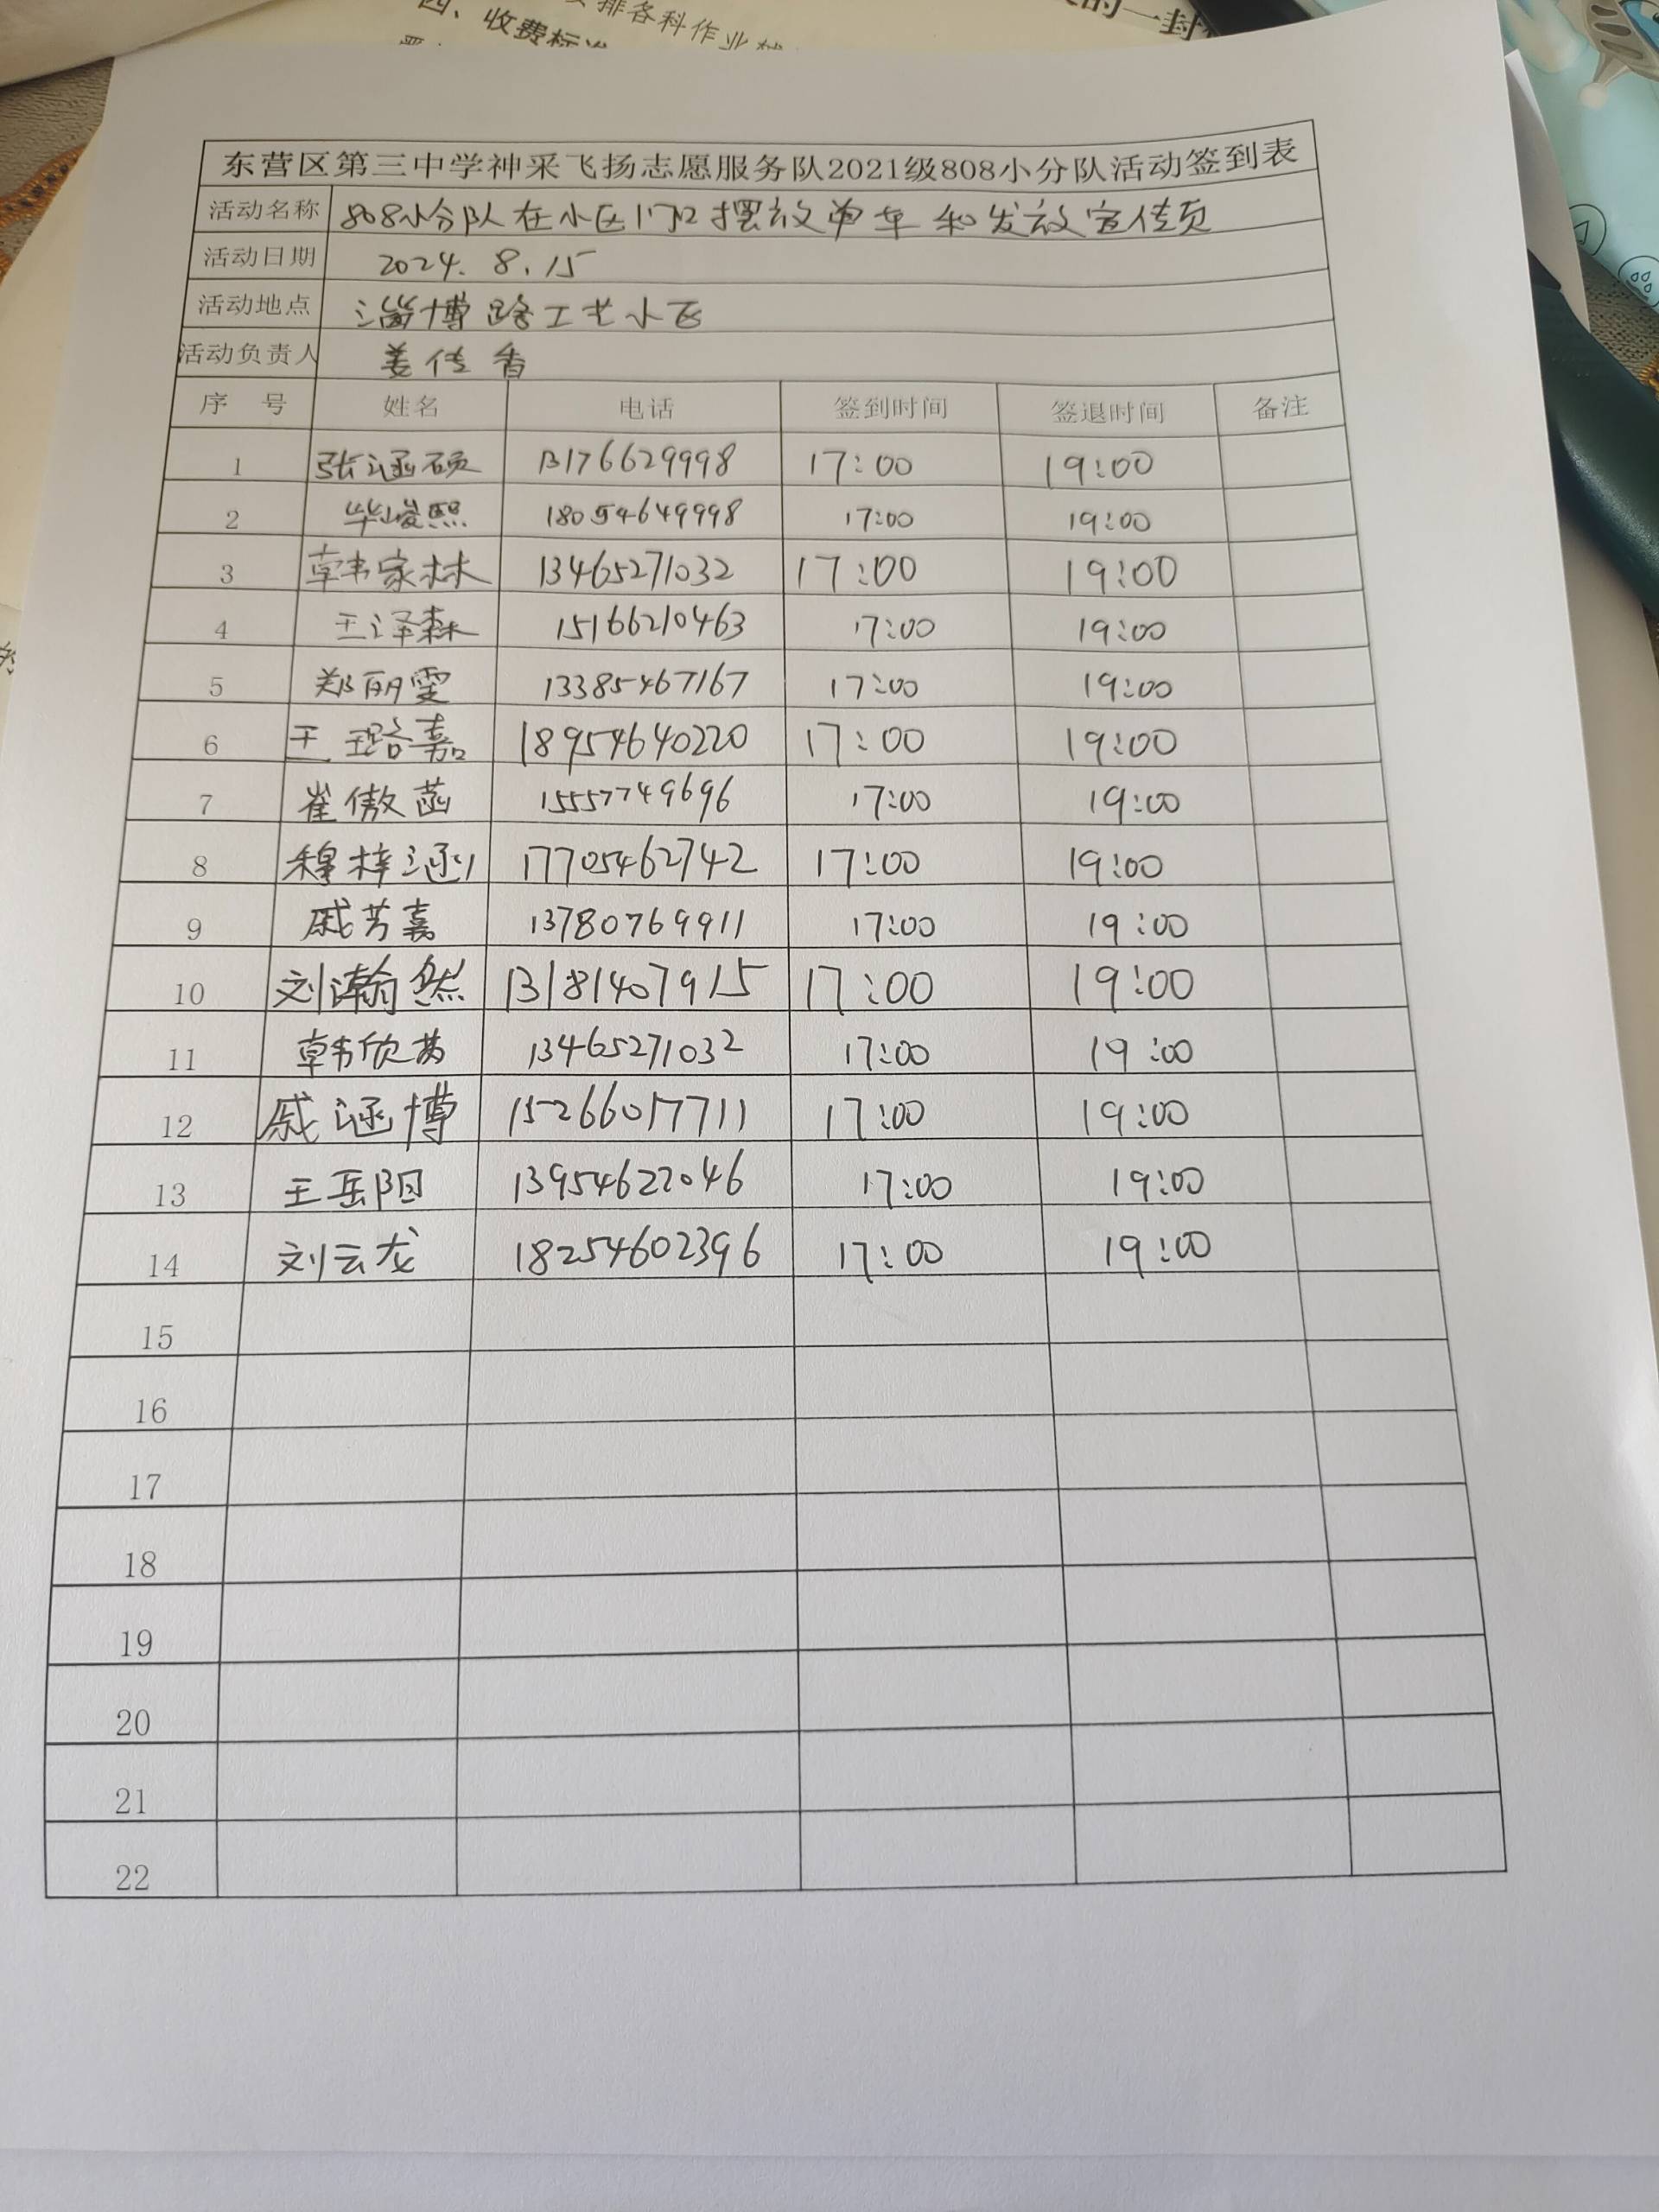 排各科作业
四、收费标准
的一封
东营区第三中学神采飞扬志愿服务队2021级808小分队活动签到表
活动名称 808小分队在小区门口摆放单车和发放宣传页
活动日期 2024.8.15
活动地点 淄博路工艺小区
活动负责人 姜传香
序号 姓名 电话 签到时间 签退时间 备注
1 张涵硕 13176629998 17:00 19:00
2 毕峻熙 18054649998 17:00 19:00
3 韩家林 13465271032 17:00 19:00
4 王泽森 15166210463 17:00 19:00
5 郑丽雯 13385467167 17:00 19:00
6 王璐嘉 18954640220 17:00 19:00
7 崔傲菡 15557749696 17:00 19:00
8 穆梓涵 17705462742 17:00 19:00
9 戚芳嘉 13780769911 17:00 19:00
10 刘瀚然 13181407915 17:00 19:00
11 韩欣 13465271032 17:00 19:00
12 戚涵博 15266017711 17:00 19:00
13 王岳阳 13954622046 17:00 19:00
14 刘云龙 18254602396 17:00 19:00
15
16
17
18
19
20
21
22